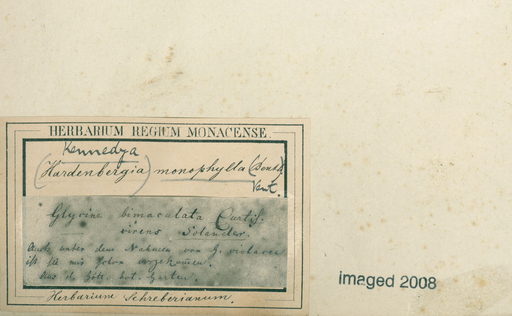 HERBARIUM REGIUM MONACENSE.
Kennedya
(Hardenbergia) monophylla (Benth)
Vent.
Glycine bimaculata Curtis.
virens Solander.
Auch unter dem Nahmen von G. violacea
ist sie mir schon
Aus d. Gött. bot. Garten.
Herbarium Schreberianum.
imaged 2008